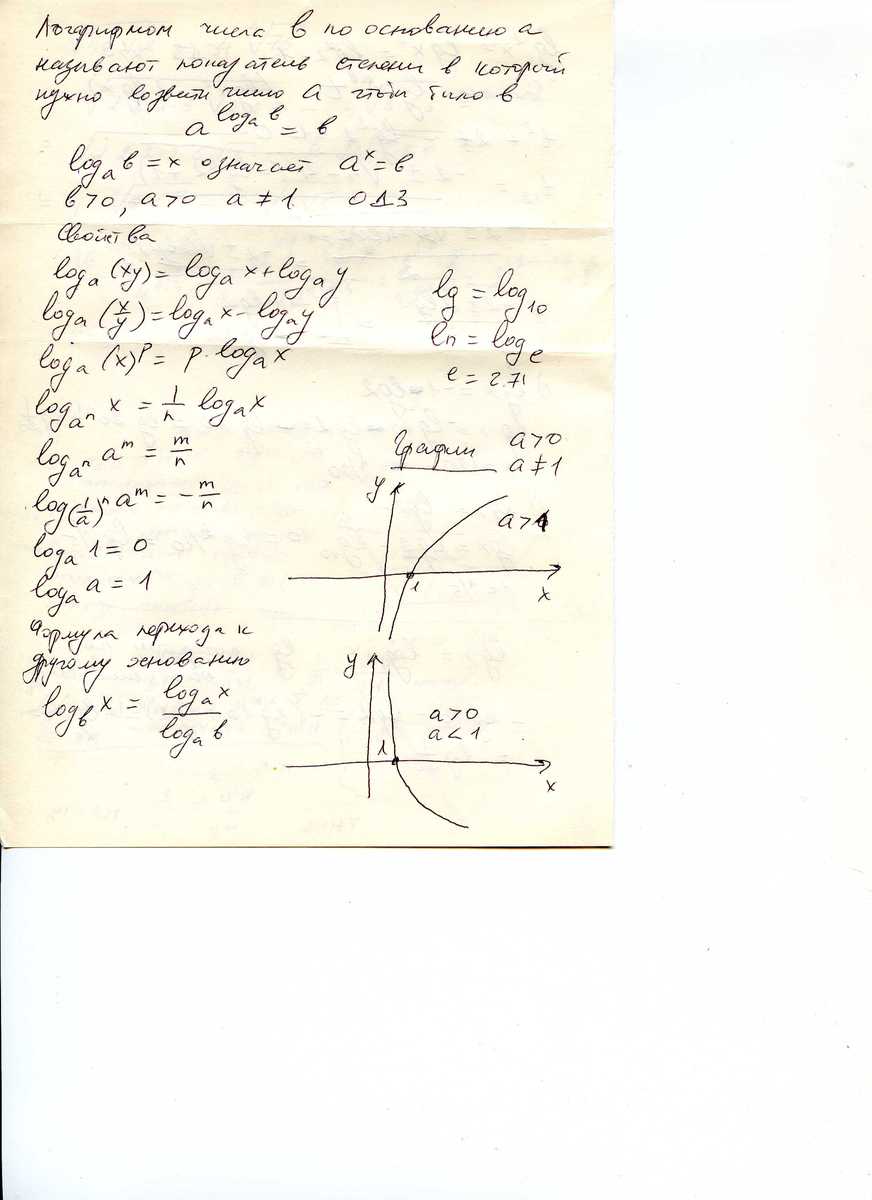 Логарифмом числа b по основанию a
называют показатель степени в который
нужно возвести число a чтобы было b
a^{log_a b} = b
log_a b = x означает a^x = b
b>0, a>0 a ≠ 1 ОДЗ
Свойства
log_a (xy) = log_a x + log_a y
log_a (x/y) = log_a x - log_a y
log_a (x)^p = p · log_a x
log_{a^n} x = 1/n log_a x
log_{a^n} a^m = m/n
log_{(1/a)^n} a^m = - m/n
log_a 1 = 0
log_a a = 1
Формула перехода к
другому основанию
log_b x = log_a x / log_a b
lg = log_10
ln = log_e
e = 2.71
Графики a>0
a ≠ 1
y
a>1
1
x
y
a>0
a<1
1
x